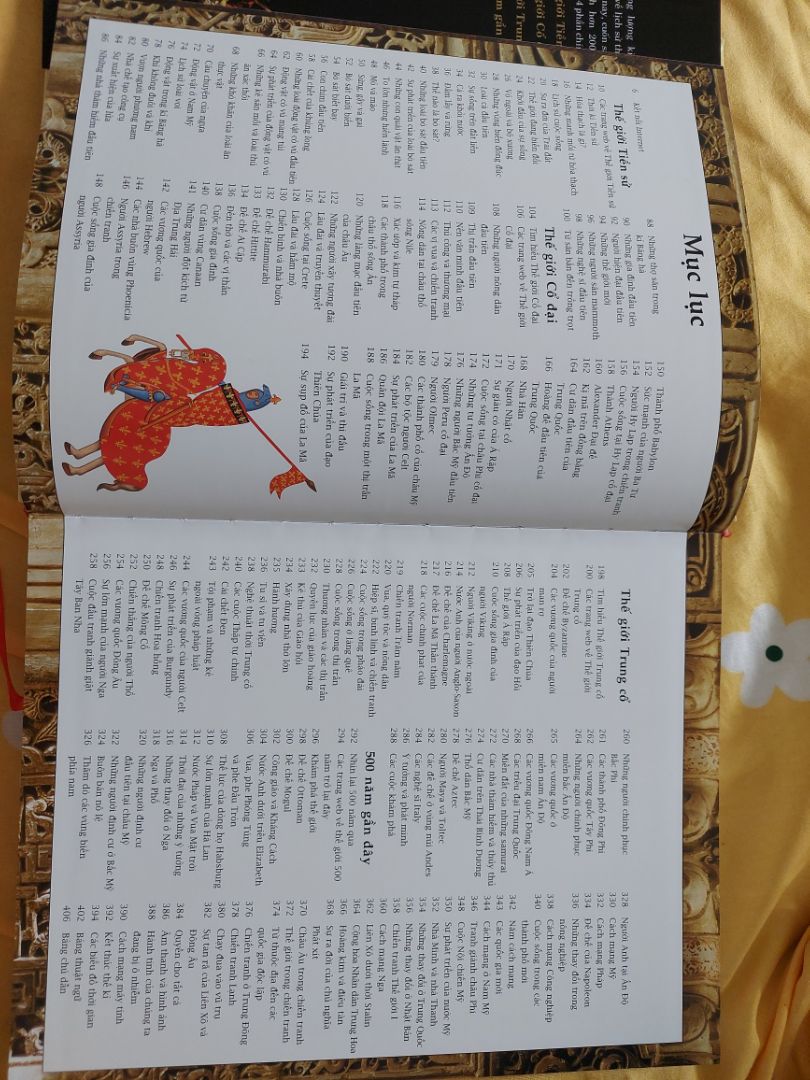 Mục lục
6 Kết nối Internet
Thế giới Tiền sử
10 Các trang web về Thế giới Tiền sử
12 Thời kì Tiền sử
14 Hóa thạch là gì?
16 Những manh mối từ hóa thạch
18 Lịch sử cuộc sống
20 Sự ra đời của Trái đất
22 Thế giới đang biến đổi
24 Khởi đầu của sự sống
26 Vỏ ngoài và bộ xương
28 Những vùng biển đông đúc
30 Loài cá đầu tiên
32 Sự sống trên đất liền
34 Cá ra khỏi nước
36 Đầm lầy và rừng
38 Thế nào là bò sát?
40 Những loài bò sát đầu tiên
42 Sự phát triển của loài bò sát
44 Những con quái vật ăn thịt
46 To lớn nhưng hiền lành
48 Mỏ và mào
50 Sừng, gờ và gai
52 Bò sát dưới biển
54 Bò sát biết bay
56 Con chim đầu tiên
58 Cái chết của khủng long
60 Những loài động vật có vú đầu tiên
62 Động vật có vú mang túi
64 Sự phát triển của động vật có vú
66 Những kẻ săn mồi và loài thú
ăn xác thối
68 Những khó khăn của loài ăn
thực vật
70 Câu chuyện của ngựa
72 Động vật ở Nam Mỹ
74 Lịch sử loài voi
76 Động vật trong kỉ Băng hà
78 Khỉ không đuôi và khỉ
80 Vượn người phương nam
82 Nhà chế tạo công cụ
84 Sự xuất hiện của lửa
86 Những nhà thám hiểm đầu tiên
88 Những thợ săn trong
kỉ Băng hà
90 Những gia đình đầu tiên
92 Người hiện đại đầu tiên
94 Những thế giới mới
96 Những người săn mammoth
98 Những nghệ sĩ đầu tiên
100 Từ săn bắn đến trồng trọt
Thế giới Cổ đại
104 Tìm hiểu Thế giới Cổ đại
106 Các trang web về Thế giới
Cổ đại
108 Những người nông dân
đầu tiên
109 Thị trấn đầu tiên
110 Nền văn minh đầu tiên
112 Thủ công và thương mại
113 Các vị vua và chiến tranh
114 Nông dân tại châu thổ
sông Nile
116 Xác ướp và kim tự tháp
118 Các thành phố trong
châu thổ sông Ấn
120 Những làng mạc đầu tiên
của châu Âu
122 Những người xây tượng đài
124 Lâu đài và truyền thuyết
126 Cuộc sống tại Crete
128 Lâu đài và hầm mộ
130 Chiến binh và nhà buôn
132 Đế chế Hammurabi
133 Đế chế Hittite
134 Đế chế Ai Cập
136 Đền thờ và các vị thần
138 Cuộc sống gia đình
140 Cư dân vùng Canaan
141 Những người đột kích từ
Địa Trung Hải
142 Các vương quốc của
người Hebrew
144 Các nhà buôn vùng Phoenicia
146 Người Assyria trong
chiến tranh
148 Cuộc sống gia đình của
người Assyria
150 Thành phố Babylon
152 Sức mạnh của người Ba Tư
154 Người Hy Lạp trong chiến tranh
156 Cuộc sống tại Hy Lạp cổ đại
158 Thành Athens
160 Alexander Đại đế
162 Kị mã trên đồng bằng
164 Cư dân đầu tiên của
Trung Quốc
166 Hoàng đế đầu tiên của
Trung Quốc
168 Nhà Hán
170 Người Nhật cổ
171 Sự giàu có của Ả Rập
172 Cuộc sống tại châu Phi cổ đại
174 Những tư tưởng Ấn Độ
176 Những người Bắc Mỹ đầu tiên
178 Người Peru cổ đại
179 Người Olmec
180 Các thành phố cổ của châu Mỹ
182 Các bộ tộc người Celt
184 Sự phát triển của La Mã
186 Quân đội La Mã
188 Cuộc sống trong một thị trấn
La Mã
190 Giải trí và thi đấu
192 Sự phát triển của đạo
Thiên Chúa
194 Sự sụp đổ của La Mã
Thế giới Trung cổ
198 Tìm hiểu Thế giới Trung cổ
200 Các trang web về Thế giới
Trung cổ
202 Đế chế Byzantine
204 Các vương quốc của người
man rợ
205 Trở lại đạo Thiên Chúa
206 Sự phát triển của đạo Hồi
208 Thế giới Ả Rập
210 Cuộc sống gia đình của
người Viking
212 Người Viking ở nước ngoài
214 Nước Anh của người Anglo-Saxon
216 Đế chế của Charlemagne
217 Đế chế La Mã Thần thánh
218 Các cuộc chinh phạt của
người Norman
219 Chiến tranh Trăm năm
220 Vua, quý tộc và nông dân
222 Hiệp sĩ, binh lính và chiến tranh
224 Cuộc sống trong pháo đài
226 Cuộc sống ở làng quê
228 Cuộc sống trong thị trấn
230 Thương nhân và các thị trấn
232 Quyền lực của giáo hoàng
233 Kẻ thù của Giáo hội
234 Xây dựng nhà thờ lớn
235 Hành hương
236 Tu sĩ và tu viện
238 Nghệ thuật thời Trung cổ
240 Các cuộc Thập tự chinh
242 Cái chết Đen
243 Tội phạm và những kẻ
ngoài vòng pháp luật
244 Các vương quốc của người Celt
246 Sự phát triển của Burgundy
248 Chiến tranh Hoa hồng
250 Đế chế Mông Cổ
252 Chiến thắng của người Thổ
254 Các vương quốc Đông Âu
256 Sự lớn mạnh của người Nga
258 Cuộc đấu tranh giành giật
Tây Ban Nha
260 Những người chinh phục
Bắc Phi
261 Các thành phố Đông Phi
262 Các vương quốc Tây Phi
264 Những người chinh phục
miền bắc Ấn Độ
265 Các vương quốc ở
miền nam Ấn Độ
266 Các vương quốc Đông Nam Á
268 Các triều đại Trung Quốc
270 Miền đất của những samurai
272 Các nhà thám hiểm và thủy thủ
274 Cư dân trên Thái Bình Dương
276 Thổ dân Bắc Mỹ
278 Đế chế Aztec
280 Người Maya và Toltec
282 Các đế chế ở vùng núi Andes
284 Các nghệ sĩ Italy
286 Ý tưởng và phát minh
288 Các cuộc khám phá
500 năm gần đây
292 Nhìn lại 500 năm qua
294 Các trang web về thế giới 500
năm trở lại đây
296 Khám phá thế giới
298 Đế chế Ottoman
300 Đế chế Mogul
302 Công giáo và Kháng Cách
304 Nước Anh dưới triều Elizabeth
306 Vua, phe Phóng Túng
và phe Đầu Tròn
308 Thế lực của dòng họ Habsburg
310 Sự lớn mạnh của Hà Lan
312 Nước Pháp và Vua Mặt trời
314 Thời đại của những ý tưởng
316 Những thay đổi ở Nga
318 Nga và Phổ
320 Những người định cư
đầu tiên tại châu Mỹ
322 Những người định cư ở Bắc Mỹ
324 Buôn bán nô lệ
326 Thăm dò các vùng biển
phía nam
328 Người Anh tại Ấn Độ
330 Cách mạng Mỹ
332 Cách mạng Pháp
334 Đế chế của Napoleon
336 Những thay đổi trong
nông nghiệp
338 Cách mạng Công nghiệp
340 Cuộc sống trong các
thành phố mới
342 Năm cách mạng
343 Các quốc gia mới
344 Cách mạng ở Nam Mỹ
346 Tranh giành châu Phi
348 Cuộc Nội chiến Mỹ
350 Sự phát triển của nước Mỹ
352 Nhà Minh và nhà Thanh
354 Những thay đổi ở Trung Quốc
356 Những thay đổi ở Nhật Bản
358 Chiến tranh Thế giới I
360 Cách mạng Nga
362 Liên Xô dưới thời Stalin
364 Cộng hòa Nhân dân Trung Hoa
366 Hoàng kim và điêu tàn
368 Sự ra đời của chủ nghĩa
Phát xít
370 Châu Âu trong chiến tranh
372 Thế giới trong chiến tranh
374 Từ thuộc địa đến các
quốc gia độc lập
376 Chiến tranh ở Trung Đông
378 Chiến tranh Lạnh
380 Chạy đua vào vũ trụ
382 Sự tan rã của Liên Xô và
Đông Âu
384 Quyền cho tất cả
386 Âm thanh và hình ảnh
388 Hành tinh của chúng ta
đang bị ô nhiễm
390 Cách mạng máy tính
392 Kết thúc thế kỉ
394 Các biểu đồ thời gian
402 Bảng thuật ngữ
406 Bảng chú dẫn